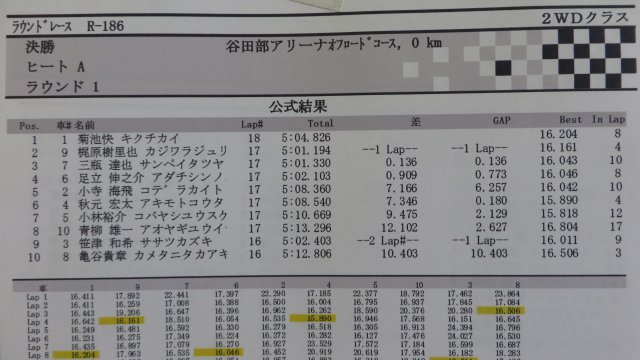 ラウンドレース R-186 2WDクラス
決勝 谷田部アリーナオフロードコース, 0 km
ヒート A
ラウンド 1
公式結果
Pos. 車# 名前 Lap# Total 差 GAP Best In Lap
1 1 菊池快 キクチカイ 18 5:04.826 16.204 8
2 9 梶原樹里也 カジワラジュリ 17 5:01.194 --1 Lap-- --1 Lap-- 16.161 4
3 7 三瓶 達也 サンベイタツヤ 17 5:01.330 0.136 0.136 16.043 10
4 6 足立 伸之介 アダチシンノ 17 5:02.103 0.909 0.773 16.046 8
5 2 小寺 海飛 コデラカイト 17 5:08.360 7.166 6.257 16.042 10
6 4 秋元 宏太 アキモトコウタ 17 5:08.540 7.346 0.180 15.890 4
7 5 小林裕介 コバヤシユウスク 17 5:10.669 9.475 2.129 15.818 12
8 10 青柳 雄一 アオヤギユウイ 17 5:13.296 12.102 2.627 16.804 17
9 3 笹津 和希 ササツカズキ 16 5:02.403 --2 Lap#-- --1 Lap-- 16.011 9
10 8 亀谷貴章 カメタニタカアキ 16 5:12.806 10.403 10.403 16.506 3
車 1 9 7 6 2 4 5 10 3 8
Lap 1 16.411 17.892 22.441 17.397 22.290 17.185 22.377 18.792 17.462 23.864
Lap 2 16.411 16.259 17.008 16.388 16.500 16.004 16.795 16.937 17.845 17.084
Lap 3 16.443 19.206 16.647 16.396 16.962 16.262 18.590 20.376 20.280 16.506
Lap 4 16.642 16.161 18.510 16.054 16.535 15.890 16.946 17.568 16.151 17.645
Lap 5 16.249 16.481 16.592 16.330 16.279 16.518 16.305 16.913 24.394 16.796
Lap 6 16.231 16.286 17.349 16.224 16.272 16.282 16.127 17.476 24.027
Lap 7 16.435 16.897 17.079 16.270 16.927 17.572 17.184 16.599
Lap 8 16.204 17.963 16.535 16.046 16.452 20.919 20.619 17.954 16.182 18.283